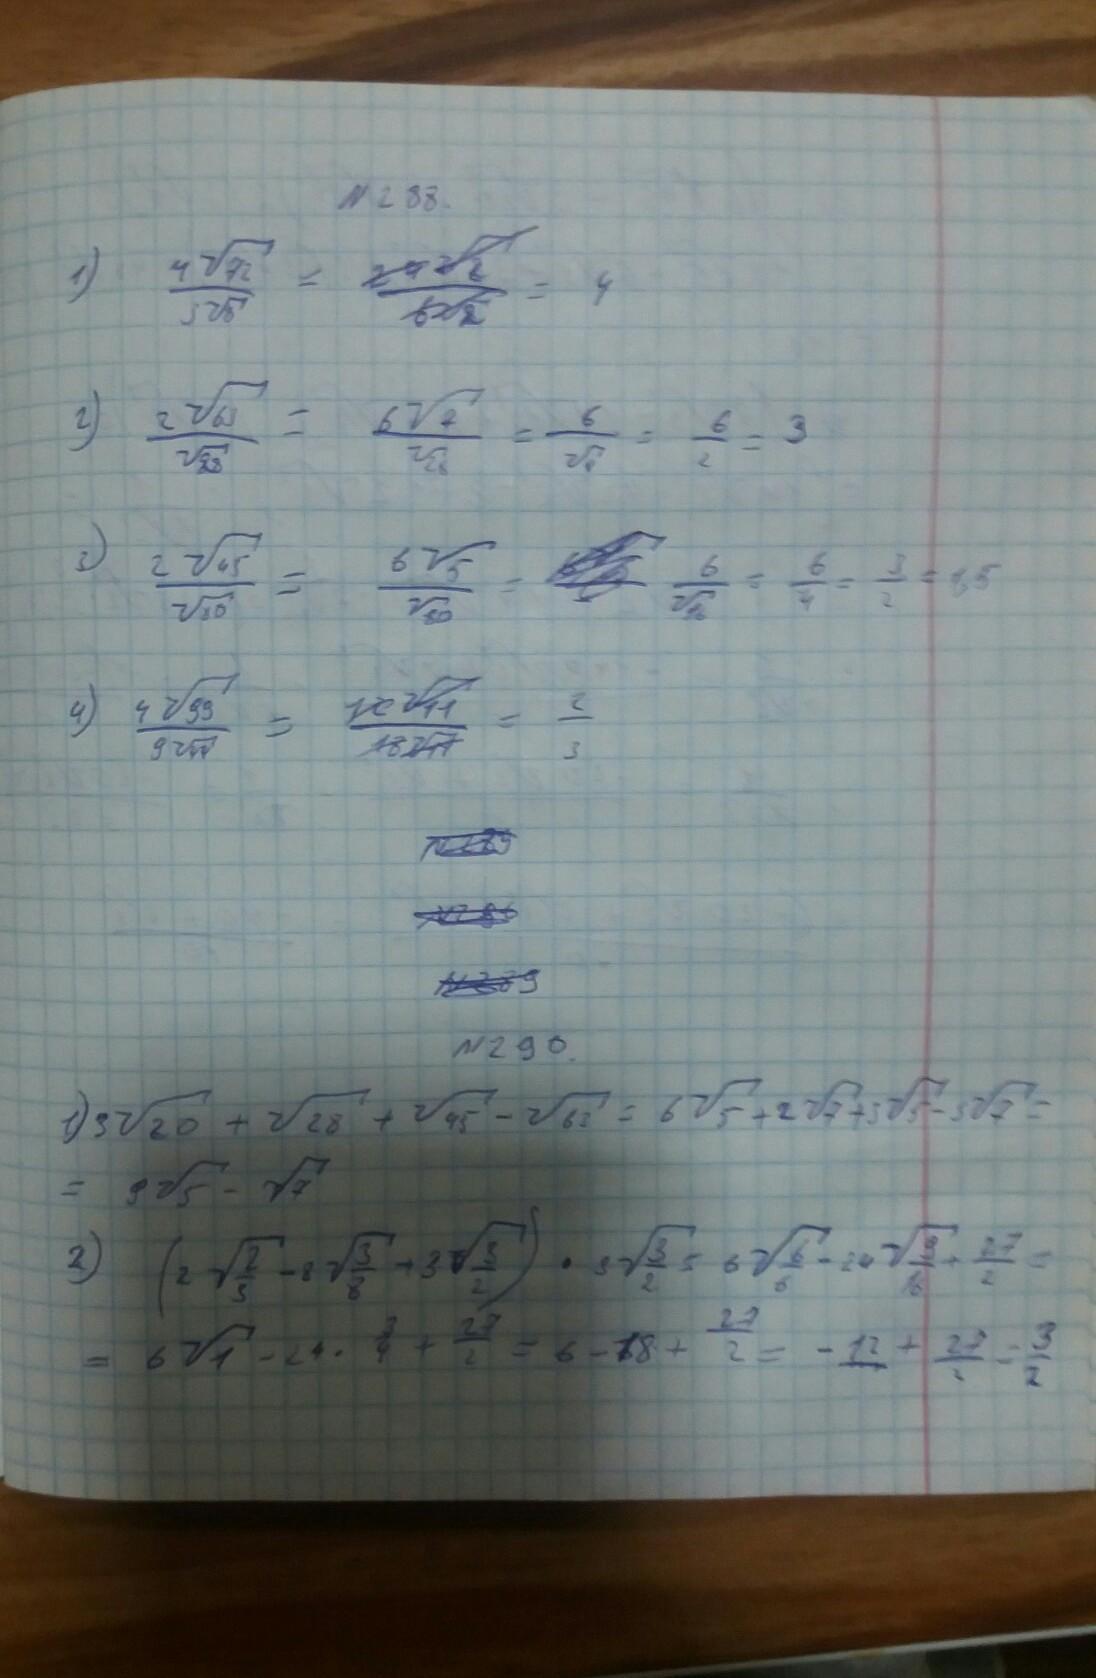 N288.
1) 4√72 / 3√8 = 24√2 / 6√2 = 4
2) 2√63 / √28 = 6√7 / √28 = 6 / √4 = 6/2 = 3
3) 2√45 / √80 = 6√5 / √80 = 6 / √16 = 6/4 = 3/2 = 1,5
4) 4√99 / 9√44 = 12√11 / 18√11 = 2/3
N289
N289
N290.
1) 3√20 + √28 + √45 - √63 = 6√5 + 2√7 + 3√5 - 3√7 =
= 9√5 - √7
2) (2√2/3 - 8√3/8 + 3√3/2) · 3√3/2 = 6√6/6 - 24√9/16 + 27/2 =
= 6√1 - 24 · 3/4 + 27/2 = 6 - 18 + 27/2 = -12 + 27/2 = 3/2